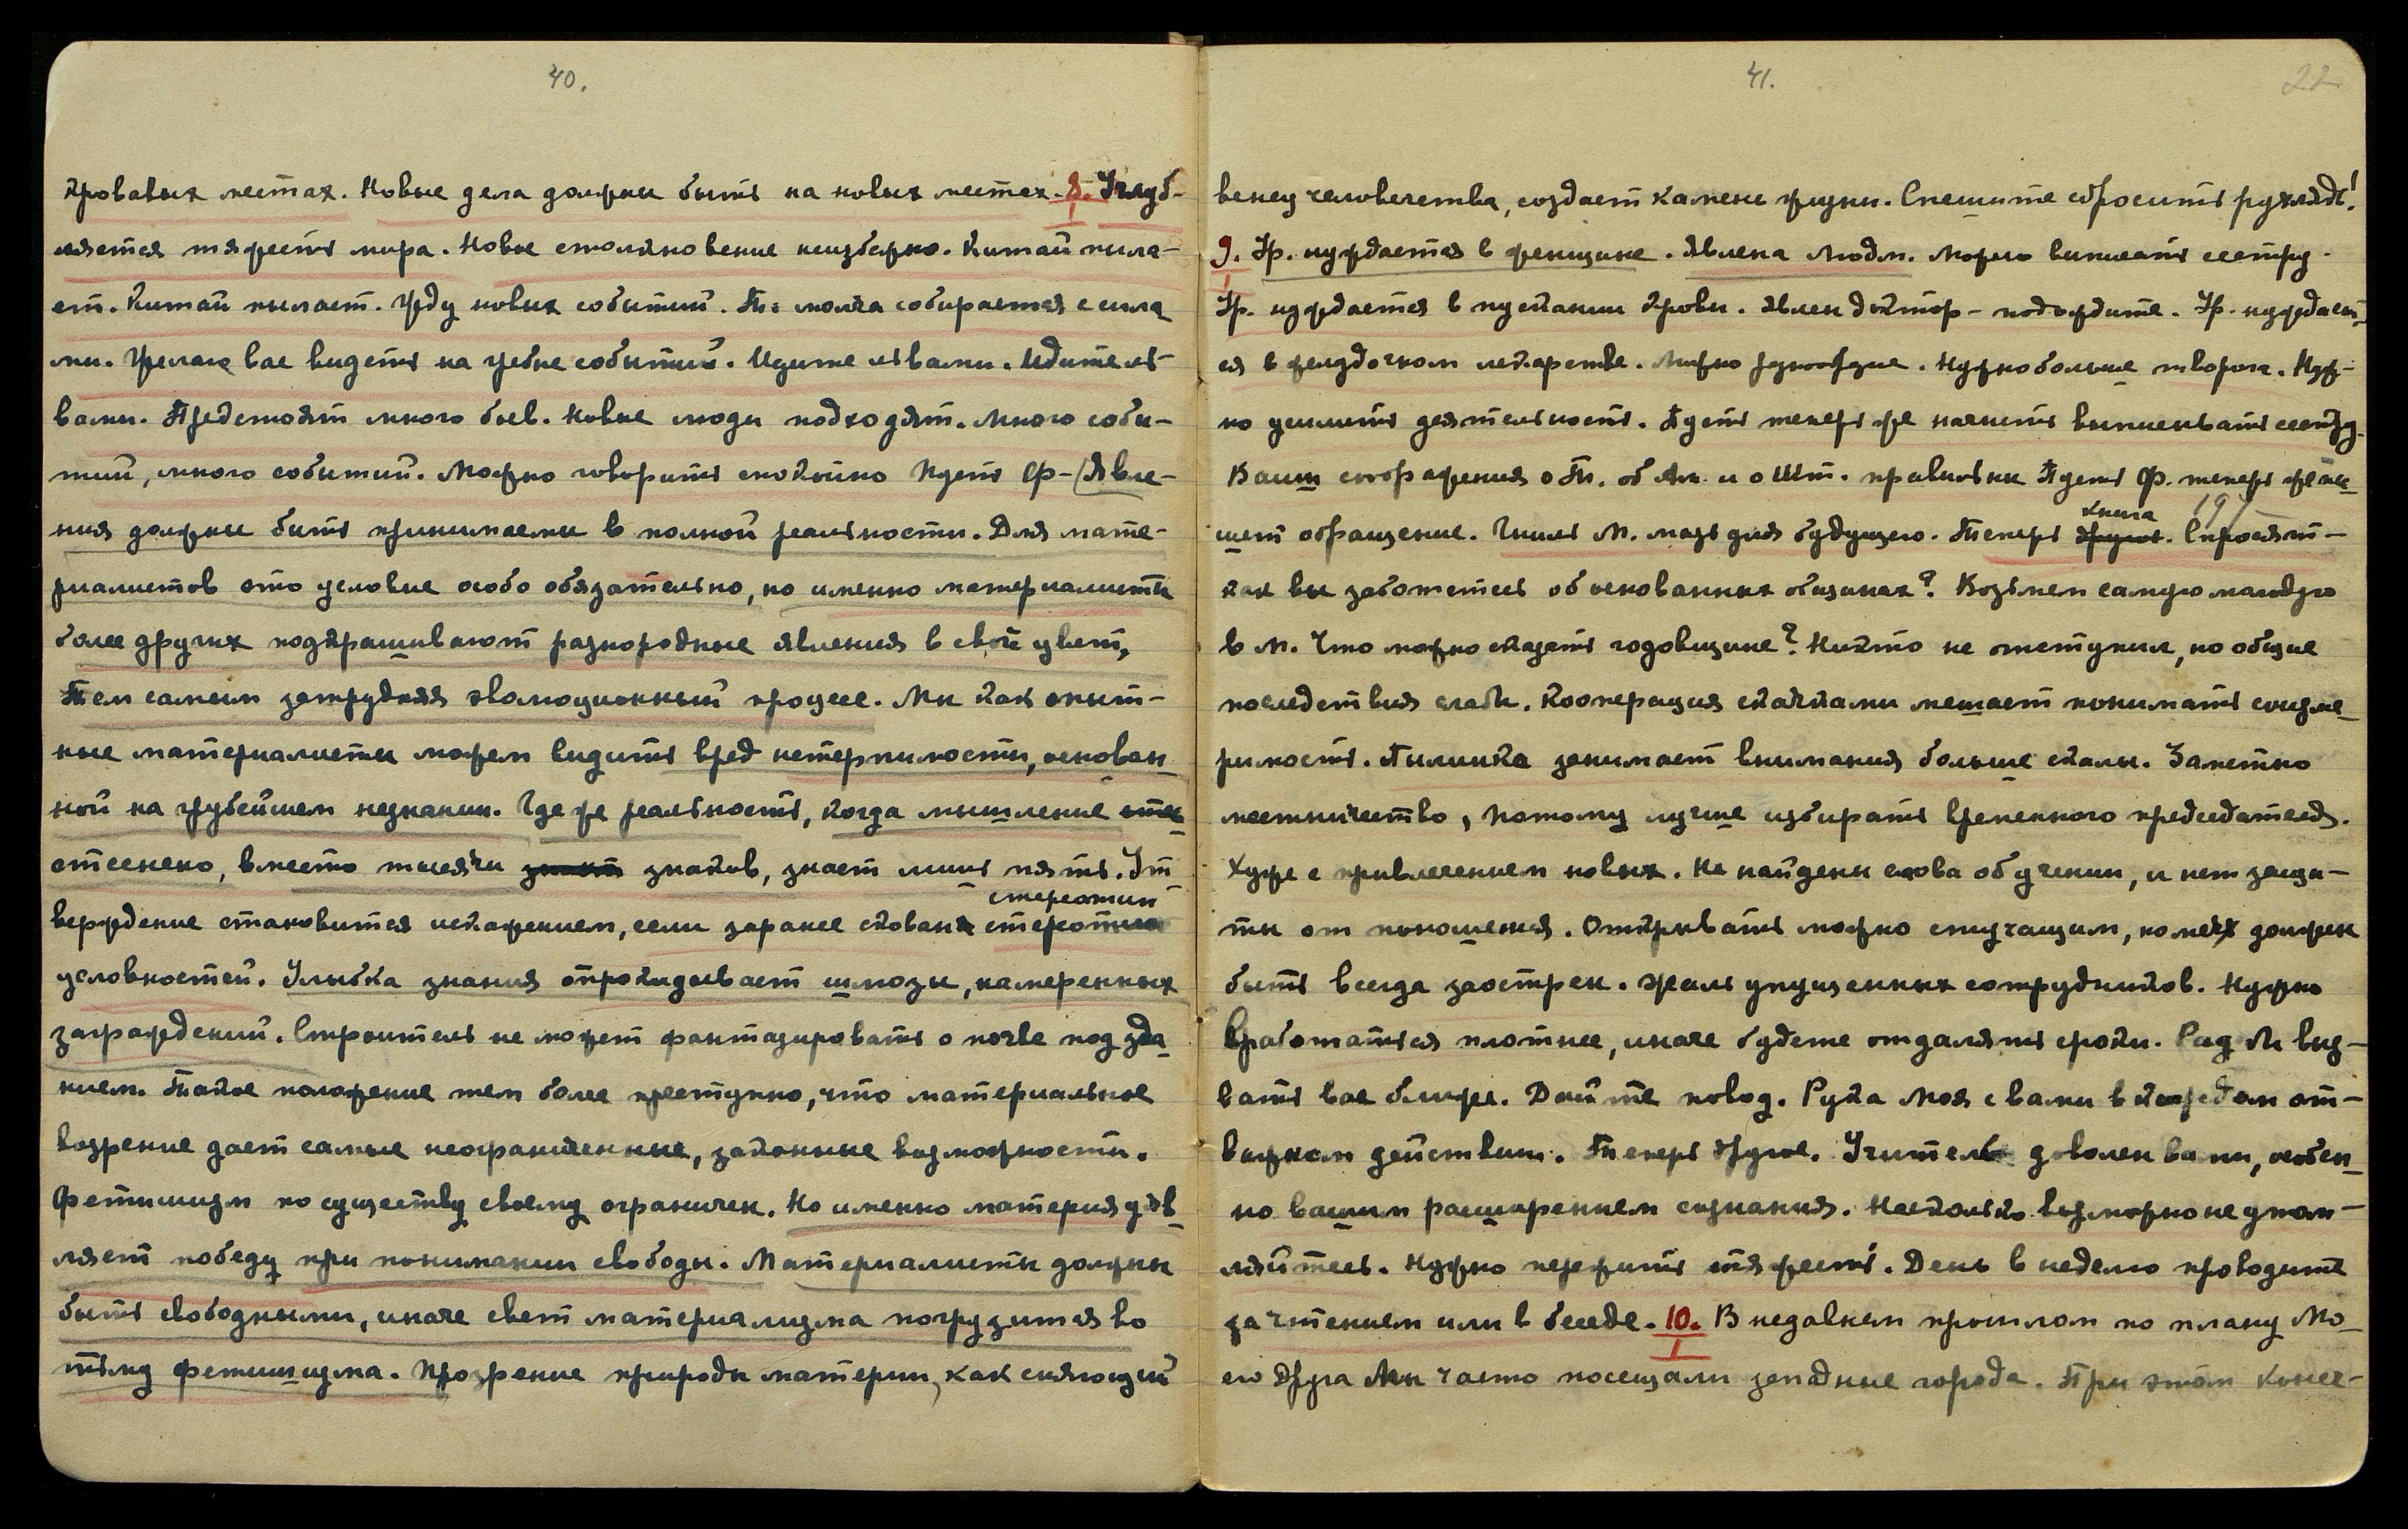 40.
кровавых местах. Новые дела должны быть на новых местах. 8. Углуб-
ляется тяжесть мира. Новое столкновение неизбежно. Китай пыла-
ет. Китай пылает. Жду новых событий. Т. молча собирается с сила
ми. Желаю вас видеть на гребне событий. Идите львами. Идите ль-
вами. Предстоят много боев. Новые люди подходят. Много собы-
тий, много событий. Можно говорить спокойно Пусть Ф- (Явле-
ния должны быть принимаемы в полной реальности. Для мате-
риалистов это условие особо обязательно, но именно материалисты
более других подкрашивают разнородные явления в свой цвет,
Тем самым затрудняя эволюционный процесс. Мы как опыт-
ные материалисты можем видеть вред нетерпимости, основан
ной на грубейшем незнании. Где же реальность, когда мышление
стеснено, вместо тысячи знаков, знает лишь пять. Ут
стереотип
верждение становится искажением, если заранее скован стереотип
условностей. Улыбка знания опрокидывает шлюзы, намеренных
заграждений. Строитель не может фантазировать о почве под зда
нием. Такое положение тем более преступно, что материальное
воззрение дает самые неограниченные, законные возможности.
Фетишизм по существу своему ограничен. Но именно материя уяв
ляет победу при понимании свободы. Материалисты должны
быть свободными, иначе свет материализма погрузится во
тьму фетишизма. Прозрение природы материи, как сияющий
41.
22
венец человечества, создает камень жизни. Спешите сбросить рухлядь!
9. Ур. нуждается в женщине. Явлена Людм. Можно выписать сестру.
Ур. нуждается в пускании крови. Явлен доктор - подождите. Ур. нуждает
ся в желудочном лекарстве. Нужно больше творога. Нуж-
но усилить деятельность. Пусть теперь же начнет выписывать сестру.
Ваши соображения о Тн. об Ам. и о Шт. правильны Пусть Ф. теперь же пи
книга
шет обращение. Числ М. мазь для будущего. Теперь другое. Спросят -
как вы заботитесь об основанных общинах? Возьмем самую молодую
в М. Что можно сказать годовщине? Никто не отступил, но общие
последствия слабы. Кооперация скачками мешает понимать соизме
римость. Пылинка занимает внимания больше скалы. Заметно
местничество, потому лучше избирать временного председателя.
Хуже с привлечением новых. Не найдены слова об учении, и нет защи-
ты от поношения. Открывать можно стучащим, но меч должен
быть всегда заострен. Жаль упущенных сотрудников. Нужно
вработаться плотнее, иначе будете отдалять сроки. Рад М. выз-
вать вас ближе. Дайте повод. Рука Моя с вами в каждом от-
важном действии. Теперь другое. Учитель доволен вами, особен
но вашим расширением сознания. Насколько возможно не утом-
ляйтесь. Нужно пережить тяжесть. День в неделю проводите
за чтением или в беседе. 10. В недавнем прошлом по плану Мо
его Друга Мы часто посещали западные города. При этом конеч-